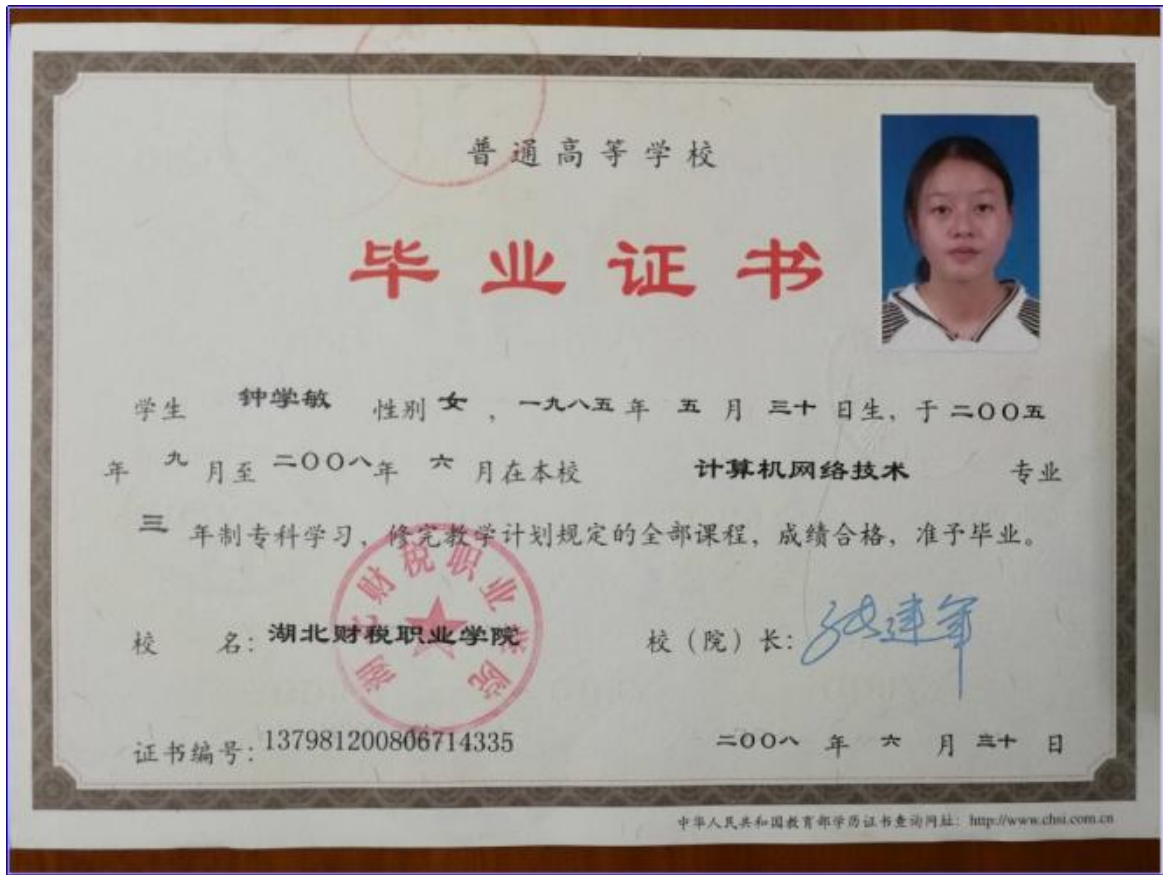 普通高等学校
毕业证书
学生 钟学敏 性别 女 ， 一九八五 年 五 月 三十 日生，于 二〇〇五
年 九 月至 二〇〇八 年 六 月在本校 计算机网络技术 专业
三 年制专科学习，修完教学计划规定的全部课程，成绩合格，准予毕业。
湖北财税职业学院
校 名：湖北财税职业学院 校（院）长：张建军
证书编号：137981200806714335 二〇〇八 年 六 月 三十 日
中华人民共和国教育部学历证书查询网址：http://www.chsi.com.cn